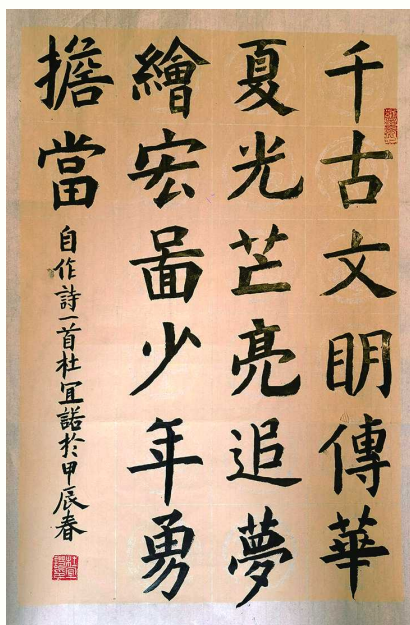 千古文明傳華
夏光芒亮追夢
繪宏啚少年勇
擔當
自作詩一首杜宜諾於甲辰春